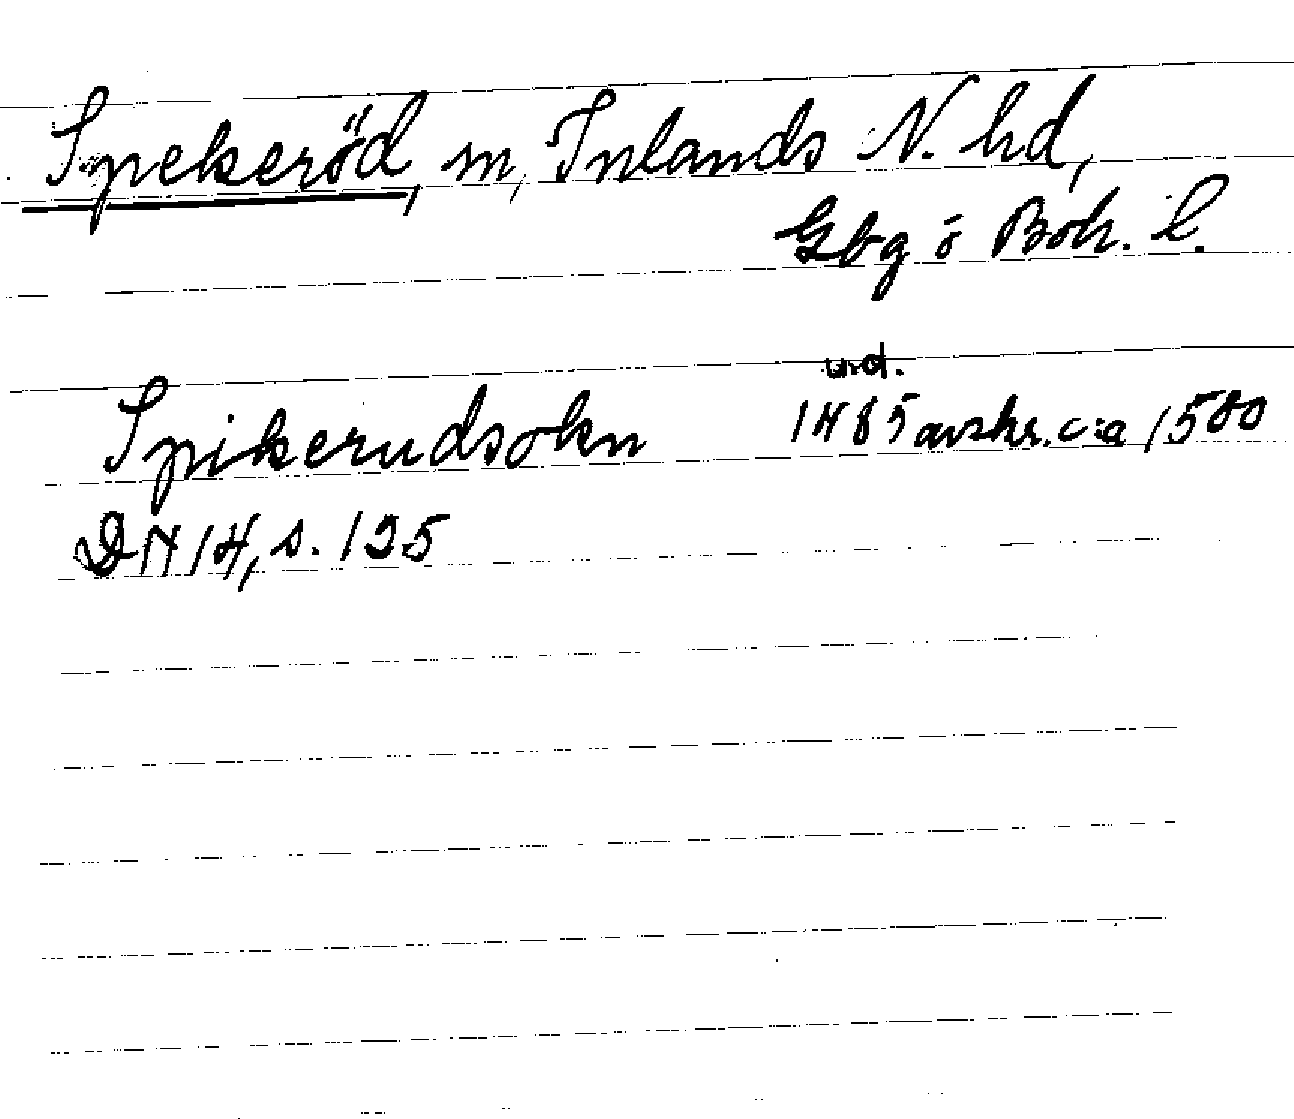 Spekeröd, sn, Inlands N. hd,
Gbg o Boh. l.
und.
Spikerudsokn 1485 avskr. c:a 1500
DN 14, s. 125